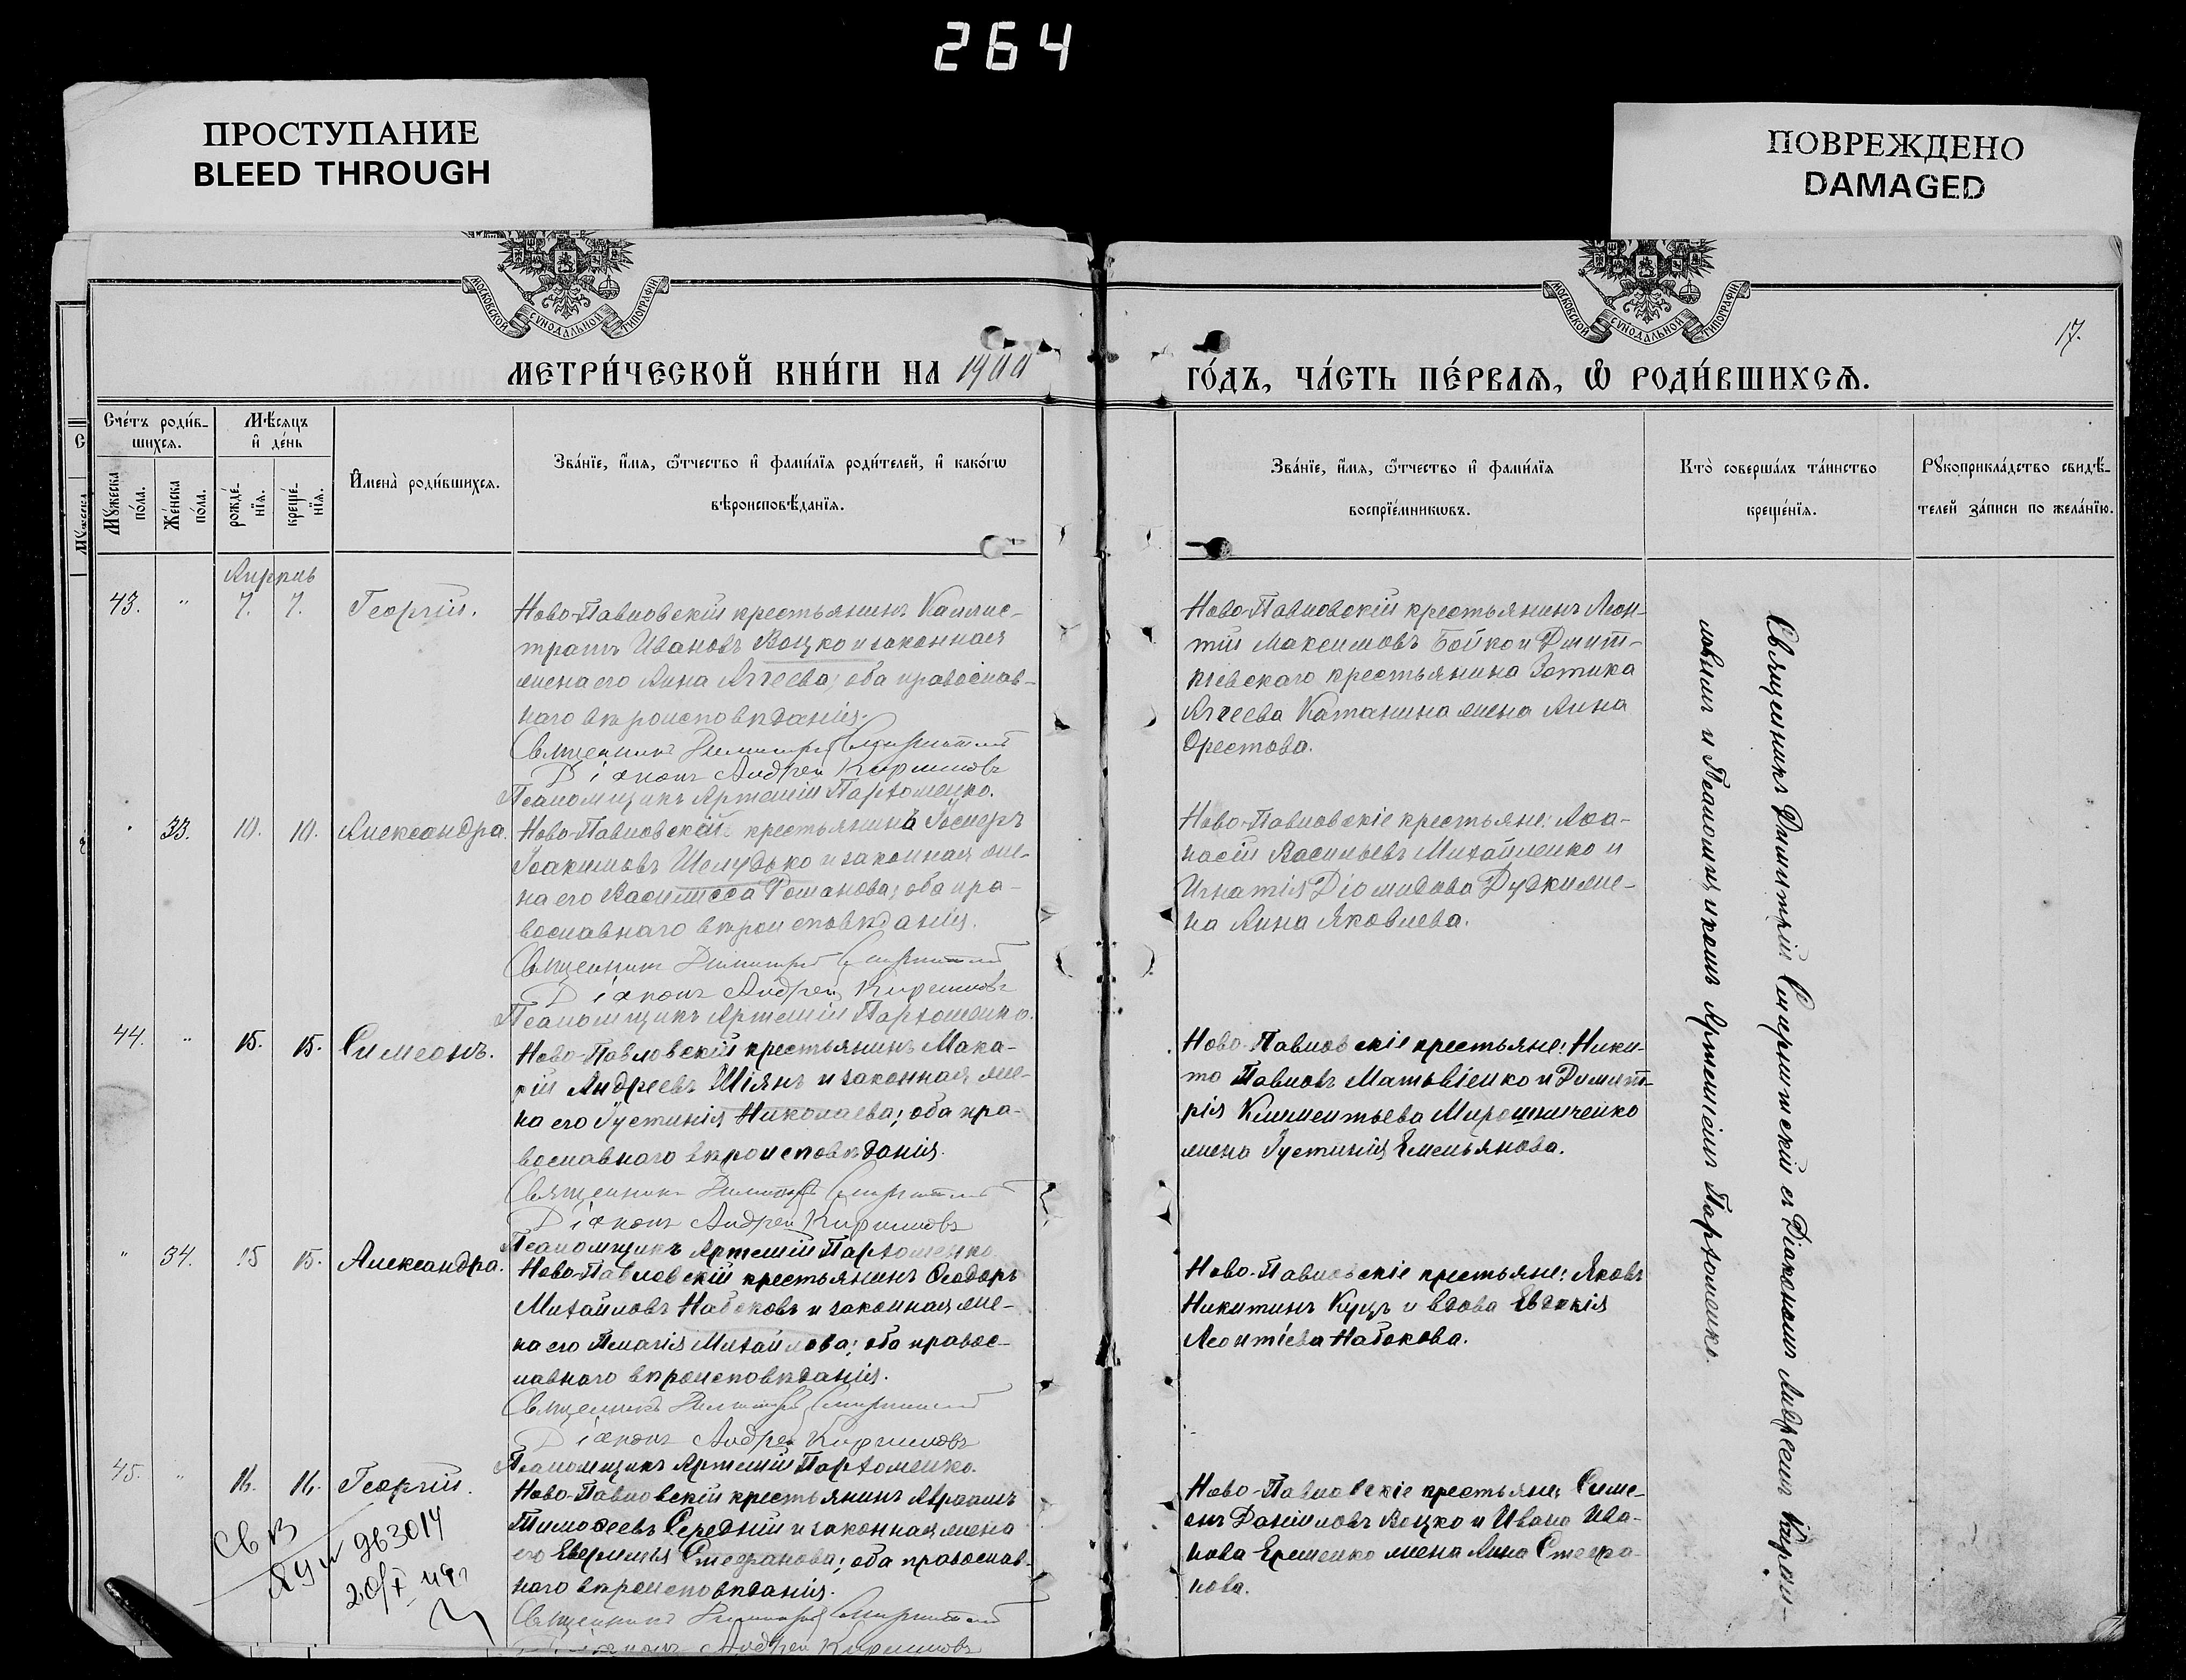 264
ПРОСТУПАНИЕ
BLEED THROUGH
ПОВРЕЖДЕНО
DAMAGED
МОСКОВСКОЙ СѴНОДАЛЬНОЙ ТИПОГРАФІИ
МОСКОВСКОЙ СѴНОДАЛЬНОЙ ТИПОГРАФІИ
17.
МЕТРИ́ЧЕСКОЙ КНИ́ГИ НА 1900
ГО́ДЪ, ЧА́СТЬ ПЕ́РВАѦ, Ѽ РОДИ́ВШИХСѦ.
Сче́тъ роди́в-
шихсѧ.
Мѣ́сяцъ
и҆ де́нь
Мꙋжеска
по́ла.
Же́нска
по́ла.
рожде́-
нїѧ.
креще́-
нїѧ.
И҆мена̀ роди́вшихсѧ.
Зва́нїе, и҆́мѧ, ѻ҆́тчество и҆ фами́лїѧ роди́телей, и҆ како́гѡ
вѣроисповѣ́данїѧ.
Зва́нїе, и҆́мѧ, ѻ҆́тчество и҆ фами́лїѧ
воспрїе́мникѡвъ.
Кто̀ соверша́лъ та́инство
креще́нїѧ.
Рꙋкоприкла́дство свидѣ́-
телей за́писи по жела́нїю.
Апрѣль
43. " 7. 7. Георгій.
Ново-Павловскій крестьянинъ Каллис-
тратъ Ивановъ Воцко и законная
жена его Анна Аггеева; оба православ-
наго вѣроисповѣданія.
Священникъ Димитрій
Діаконъ Андрей Кириловъ
Псаломщикъ Артемій Пархоменко.
Ново-Павловскій крестьянинъ Леон-
тій Максимовъ Бойко и Дмит-
Аггеева Катанина жена Анна
Орестова.
33. 10. 10. Александра.
Ново-Павловскій крестьянинъ
Іоакимовъ Шелудько и законная же-
на его Василисса Романова; оба пра-
вославнаго вѣроисповѣданія.
Священникъ Димитрій
Діаконъ Андрей Кириловъ
Псаломщикъ Артемій Пархоменко.
Ново-Павловскіе крестьяне: Аѳа-
насій Васильевъ Михайленко и
Игнатія Діомидова Дудки же-
на Анна Яковлева.
44. " 15. 15. Симеонъ.
Ново-Павловскій крестьянинъ Мака-
рій Андреевъ Шіянъ и законная же-
на его Іустинія Николаева; оба пра-
вославнаго вѣроисповѣданія.
Священникъ Димитрій
Діаконъ Андрей Кириловъ
Псаломщикъ Артемій Пархоменко
Ново-Павловскіе крестьяне: Ники-
та Павловъ Матвіенко и Димит-
рія Климентьева Мирошниченко
жена Іустинія Емельянова.
" 34. 15 15. Александра.
Ново-Павловскій крестьянинъ Ѳеодоръ
Михайловъ Набоковъ и законная же-
на его Пелагія Михайлова; оба правос-
лавнаго вѣроисповѣданія.
Священникъ Димитрій
Діаконъ Андрей Кириловъ
Псаломщикъ Артемій Пархоменко.
Ново-Павловскіе крестьяне: Яковъ
Никитинъ Куцъ и вдова Евдокія
Леонтіева Набокова.
45. " 16. 16. Георгій.
Ново-Павловскій крестьянинъ Авраамъ
Тимоѳеевъ Середній и законная жена
его Стефанова; оба православ-
наго вѣроисповѣданія.
Священникъ Димитрій
Діаконъ Андрей Кириловъ
Ново-Павловскіе крестьяне: Симе-
онъ Даніиловъ Воцко и Ивана Ива-
нова Ерешенко жена Анна Стефа-
нова.
963014
Священникъ Димитрій съ Діакономъ Андреемъ Кири-
ловымъ и Псаломщикомъ Артеміемъ Пархоменко.